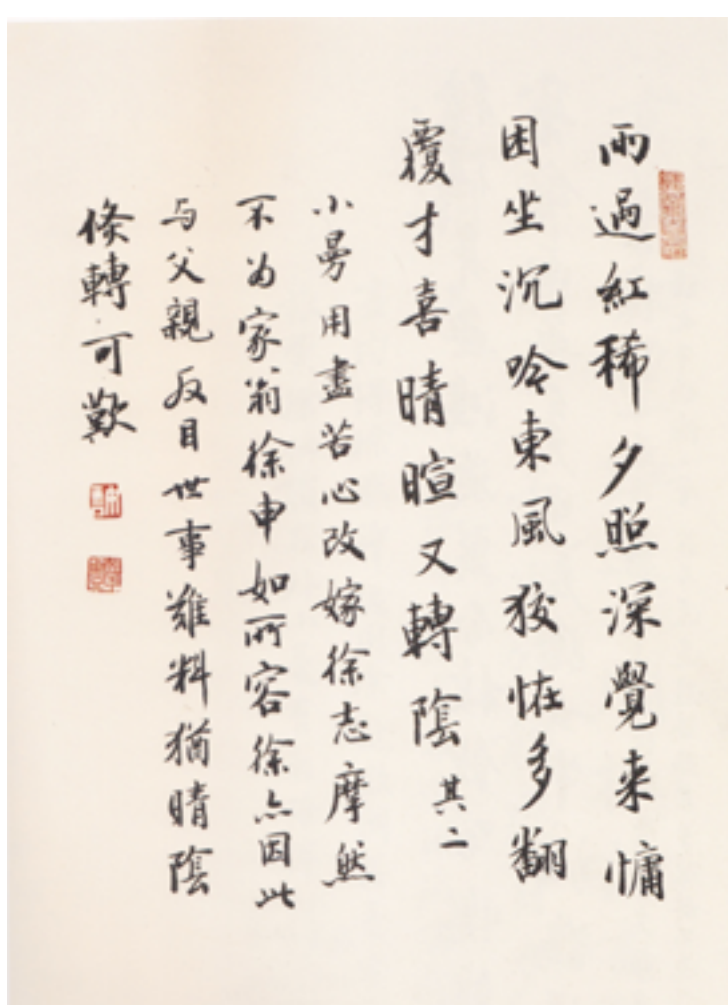 雨過紅稀夕照深覺来慵
困坐沉吟東風狡恠多翻
覆才喜晴暄又轉陰 其二
小曼用盡苦心改嫁徐志摩然
不为家翁徐申如所容徐亦因此
与父親反目世事難料猶晴陰
倏轉可歎